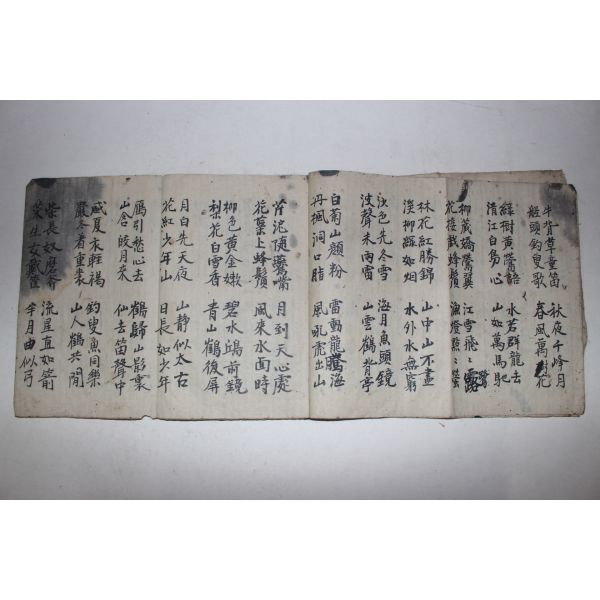 牛背草童笛 秋夜千峰月
船頭釣叟歌 春風萬樹花
綠樹黃鶯語 水若群龍去
清江白鳥心 山如萬馬馳
柳嬌鶯翼 江雪飛〻鷺
花接戱蜂鬚 漁燈點〻螢
林花紅勝錦 山中山不盡
溪柳綠如烟 水外水無窮
江色先冬雪 海月魚頭鏡
波聲未雨雷 山雲鶴背亭
白菊山顔粉 雷動龍驚海
丹楓洞口脂 風吼虎出山
芹泥隨鷰嘴 月到天心處
花蘂上蜂鬚 風來水面時
柳色黃金嫩 碧水鷗前鏡
梨花白雪香 青山鶴後屏
月白先天夜 山靜似太古
花紅少年山 日長如少年
鴈引愁心去 鶴歸山影裏
山含皎月來 仙去笛聲中
盛夏衣輕褐 釣叟魚同樂
嚴冬着重裘 山人鶴共閒
柴長奴磨斧 流星直如箭
菜生女戴筐 半月曲似弓